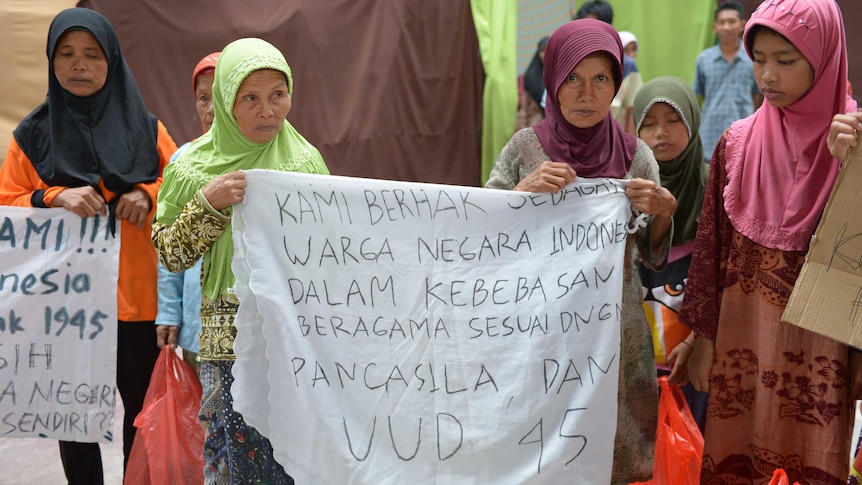 AMI !!!
nesia
ak 1945
SIH
A NEGERI
SENDIRI ??
KAMI BERHAK SEBAGAI
WARGA NEGARA INDONES
DALAM KEBEBASAN
BERAGAMA SESUAI DNGN
PANCASILA, DAN
UUD 45